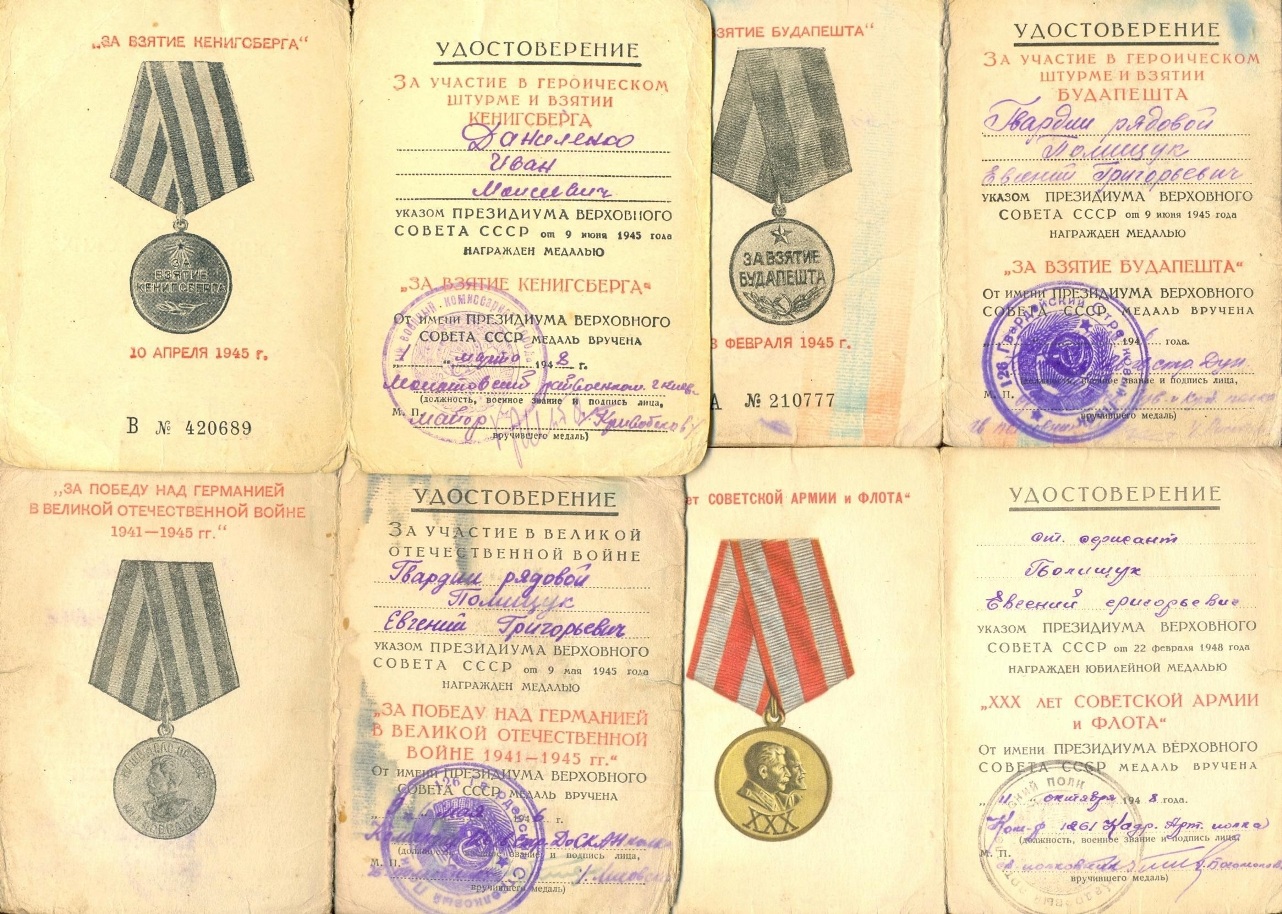 „ЗА ВЗЯТИЕ КЕНИГСБЕРГА“
ЗА
ВЗЯТИЕ
КЕНИГСБЕРГА
10 АПРЕЛЯ 1945 г.
В № 420689
УДОСТОВЕРЕНИЕ
ЗА УЧАСТИЕ В ГЕРОИЧЕСКОМ
ШТУРМЕ И ВЗЯТИИ
КЕНИГСБЕРГА
Даниленко
Иван
Моисеевич
УКАЗОМ ПРЕЗИДИУМА ВЕРХОВНОГО
СОВЕТА СССР от 9 июня 1945 года
НАГРАЖДЕН МЕДАЛЬЮ
„ЗА ВЗЯТИЕ КЕНИГСБЕРГА“
От имени ПРЕЗИДИУМА ВЕРХОВНОГО
СОВЕТА СССР МЕДАЛЬ ВРУЧЕНА
марта 1948 г.
Молотовский райвоенком г. Киев
(должность, военное звание и подпись лица,
М. П. майор
вручившего медаль)
ВЗЯТИЕ БУДАПЕШТА“
ЗА ВЗЯТИЕ
БУДАПЕШТА
3 ФЕВРАЛЯ 1945 г.
А № 210777
УДОСТОВЕРЕНИЕ
ЗА УЧАСТИЕ В ГЕРОИЧЕСКОМ
ШТУРМЕ И ВЗЯТИИ
БУДАПЕШТА
Гвардии рядовой
Полищук
Евгений Григорьевич
УКАЗОМ ПРЕЗИДИУМА ВЕРХОВНОГО
СОВЕТА СССР от 9 июня 1945 года
НАГРАЖДЕН МЕДАЛЬЮ
„ЗА ВЗЯТИЕ БУДАПЕШТА“
От имени ПРЕЗИДИУМА ВЕРХОВНОГО
СОВЕТА СССР МЕДАЛЬ ВРУЧЕНА
1946 года.
(должность, военное звание и подпись лица,
М. П.
вручившего медаль)
126 Гвардейский Стрелковый Полк
„ЗА ПОБЕДУ НАД ГЕРМАНИЕЙ
В ВЕЛИКОЙ ОТЕЧЕСТВЕННОЙ ВОЙНЕ
1941—1945 гг.“
НАШЕ ДЕЛО ПРАВОЕ
МЫ ПОБЕДИЛИ
УДОСТОВЕРЕНИЕ
ЗА УЧАСТИЕ В ВЕЛИКОЙ
ОТЕЧЕСТВЕННОЙ ВОЙНЕ
Гвардии рядовой
Полищук
Евгений Григорьевич
УКАЗОМ ПРЕЗИДИУМА ВЕРХОВНОГО
СОВЕТА СССР от 9 мая 1945 года
НАГРАЖДЕН МЕДАЛЬЮ
„ЗА ПОБЕДУ НАД ГЕРМАНИЕЙ
В ВЕЛИКОЙ ОТЕЧЕСТВЕННОЙ
ВОЙНЕ 1941—1945 гг.“
От имени ПРЕЗИДИУМА ВЕРХОВНОГО
СОВЕТА СССР МЕДАЛЬ ВРУЧЕНА
мая 1946 г.
(должность, военное звание и подпись лица,
М. П.
вручившего медаль)
126 Гвардейский Стрелковый Полк
ет СОВЕТСКОЙ АРМИИ и ФЛОТА“
XXX
УДОСТОВЕРЕНИЕ
ст. сержант
Полищук
Евгений Григорьевич
УКАЗОМ ПРЕЗИДИУМА ВЕРХОВНОГО
СОВЕТА СССР от 22 февраля 1948 года
НАГРАЖДЕН ЮБИЛЕЙНОЙ МЕДАЛЬЮ
„XXX лет СОВЕТСКОЙ АРМИИ
и ФЛОТА“
От имени ПРЕЗИДИУМА ВЕРХОВНОГО
СОВЕТА СССР МЕДАЛЬ ВРУЧЕНА
„11“ октября 1948 года.
Ком-р 1261 Кадр. Арт. полка
(должность, военное звание и подпись лица,
М. П. полковник
вручившего медаль)